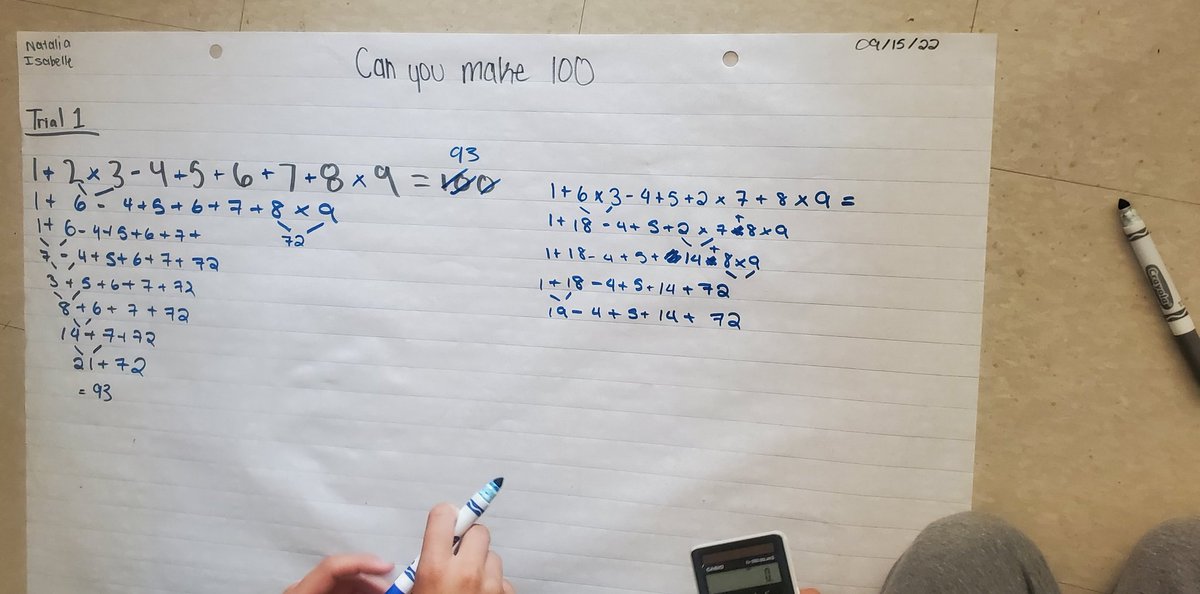 Natalia
Isabelle
09/15/22
Can you make 100
Trial 1
93
1+2×3-4+5+6+7+8×9=100
1+ 6 - 4+5+6+7+8×9
72
1+6-4+5+6+7+
7-4+5+6+7+72
3+5+6+7+72
8+6+7+72
14+7+72
21+72
=93
1+6×3-4+5+2×7+8×9=
1+18-4+5+2×7+8×9
1+18-4+5+14+8×9
1+18-4+5+14+72
19-4+5+14+72
Crayola
CASIO
0